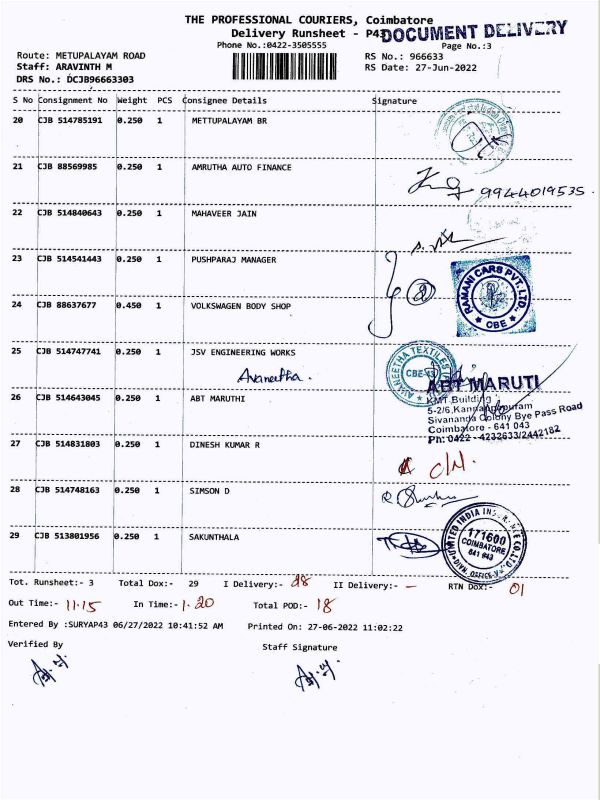 THE PROFESSIONAL COURIERS, Coimbatore
Delivery Runsheet - P43
DOCUMENT DELIVERY
Phone No.:0422-3505555
Page No.:3
Route: METUPALAYAM ROAD
RS No.: 966633
Staff: ARAVINTH M
RS Date: 27-Jun-2022
DRS No.: DCJB96663303
S No Consignment No Weight PCS Consignee Details Signature
20 CJB 514785191 0.250 1 METTUPALAYAM BR
21 CJB 88569985 0.250 1 AMRUTHA AUTO FINANCE
9944019535.
22 CJB 514840643 0.250 1 MAHAVEER JAIN
23 CJB 514541443 0.250 1 PUSHPARAJ MANAGER
RAMANI CARS PVT. LTD.,
CBE
24 CJB 88637677 0.450 1 VOLKSWAGEN BODY SHOP
25 CJB 514747741 0.250 1 JSV ENGINEERING WORKS
Avaneetha.
AVANEETHA TEXTILES
CBE-43
26 CJB 514643045 0.250 1 ABT MARUTHI
ABT MARUTI
KMT Building
5-2/6, Kannappapuram
Sivananda Colony Bye Pass Road
Coimbatore - 641 043
Ph: 0422 - 4232633/2442182
27 CJB 514831803 0.250 1 DINESH KUMAR R
28 CJB 514748163 0.250 1 SIMSON D
29 CJB 513801956 0.250 1 SAKUNTHALA
UNITED INDIA INSURANCE CO. LTD.
171600
COIMBATORE
641 043
Tot. Runsheet:- 3 Total Dox:- 29 I Delivery:- 28 II Delivery:- - RTN Dox:- 01
Out Time:- 11.15 In Time:- 1.20 Total POD:- 18
Entered By :SURYAP43 06/27/2022 10:41:52 AM Printed On: 27-06-2022 11:02:22
Verified By Staff Signature